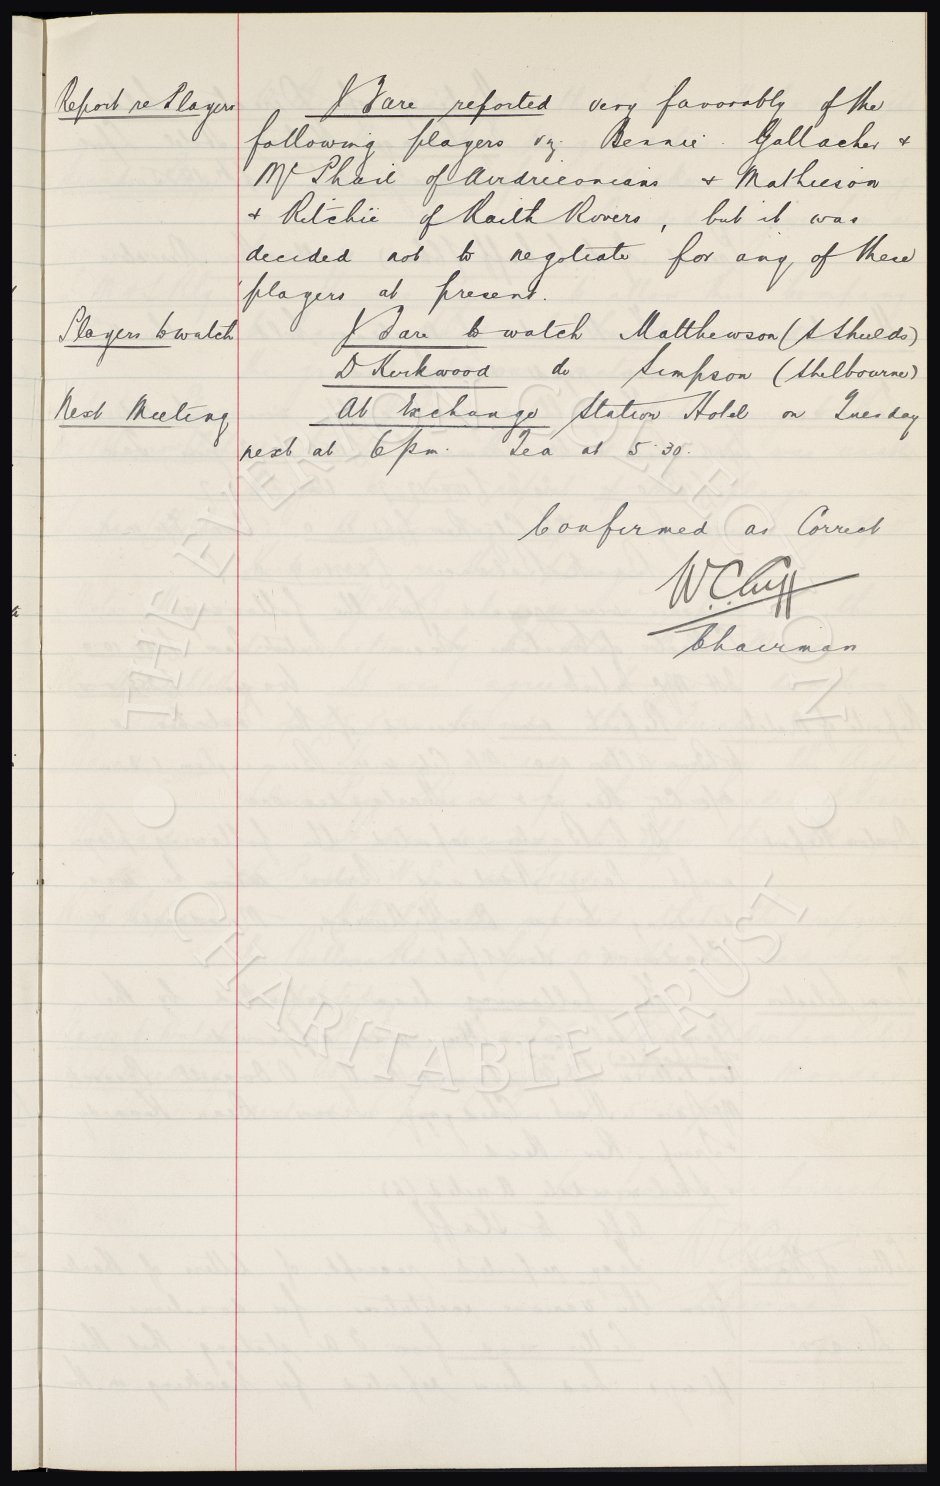 Report re Players J Fare reported very favorably of the
following players viz. Bennie Gallacher +
McPhail of Airdrieonians + Mathieson
+ Ritchie of Raith Rovers, but it was
decided not to negotiate for any of these
players at present.
Players to watch J Fare to watch Matthewson (S Shields)
D Kirkwood do Simpson (Shelbourne)
Next Meeting At Exchange Station Hotel on Tuesday
next at 6pm. Tea at 5.30.
Confirmed as Correct
W.C.Cuff
Chairman
THE EVERTON COLLECTION
CHARITABLE TRUST